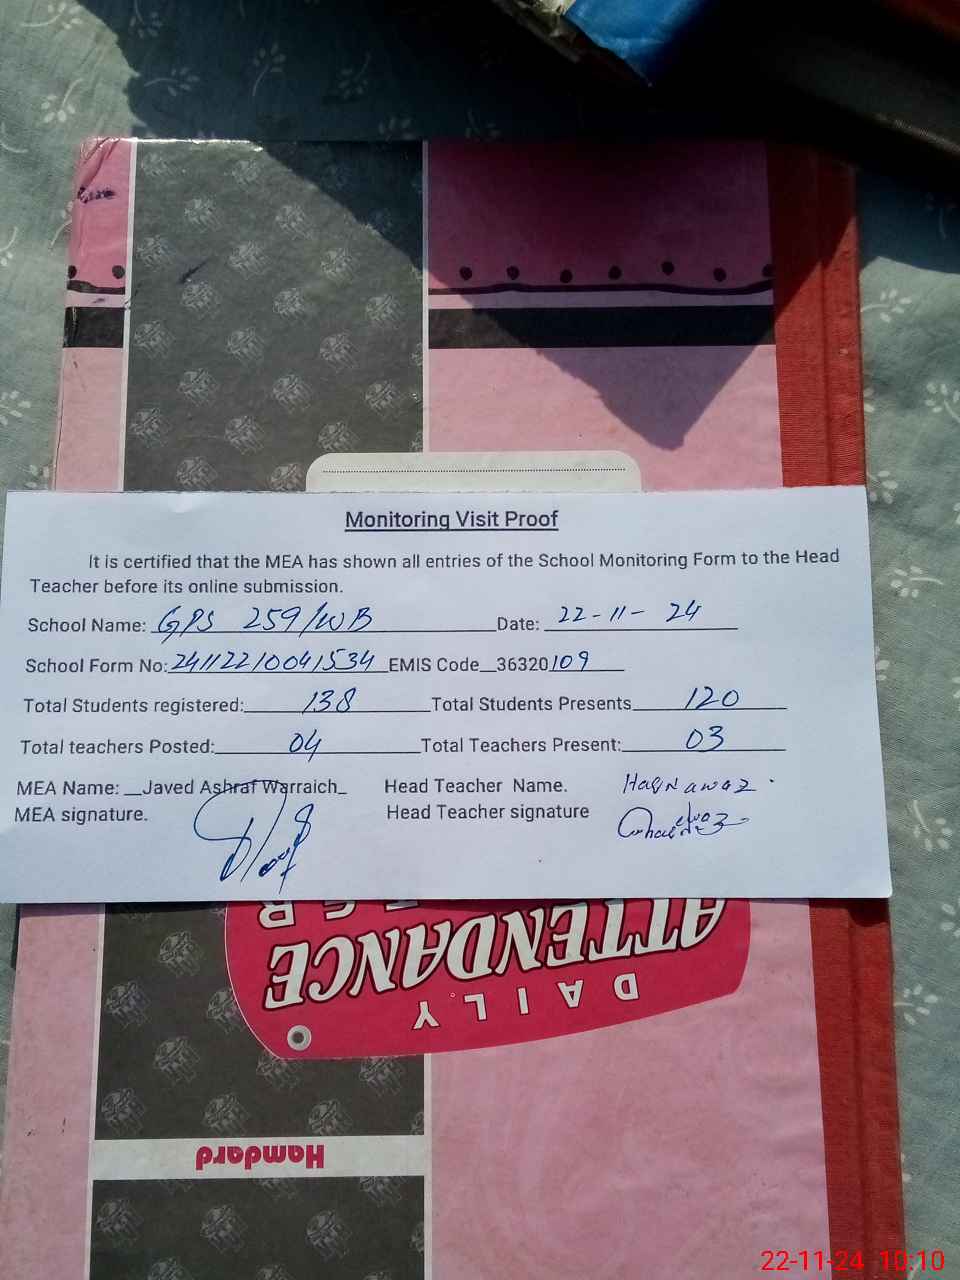 Monitoring Visit Proof
It is certified that the MEA has shown all entries of the School Monitoring Form to the Head
Teacher before its online submission.
School Name: GPS 259/WB Date: 22-11-24
School Form No: 24112210041534 EMIS Code 36320109
Total Students registered: 138 Total Students Presents 120
Total teachers Posted: 04 Total Teachers Present: 03
MEA Name: Javed Ashraf Warraich Head Teacher Name. Haq Nawaz
MEA signature. Head Teacher signature
DAILY
ATTENDANCE
Hamdard
22-11-24 10:10